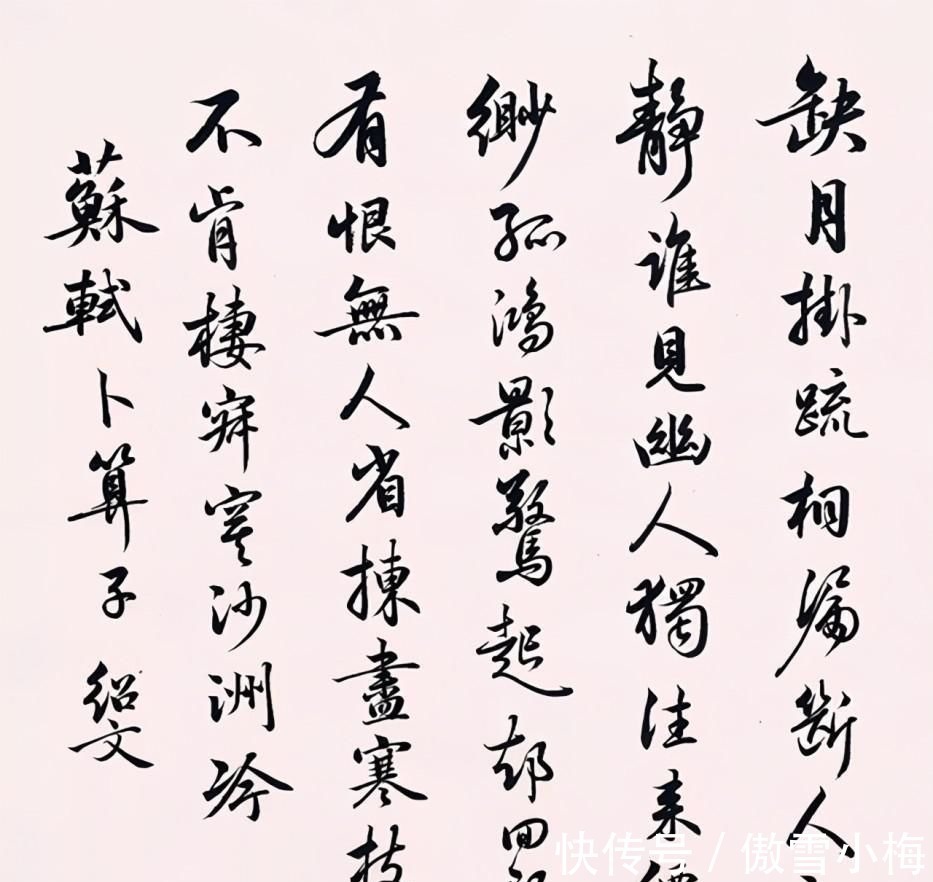 缺月掛疏桐漏斷人
靜誰見幽人獨往来
緲孤鴻影驚起却回
有恨無人省揀盡寒枝
不肯棲寂寞沙洲冷
蘇軾卜算子 紹文
快传号 / 傲雪小梅